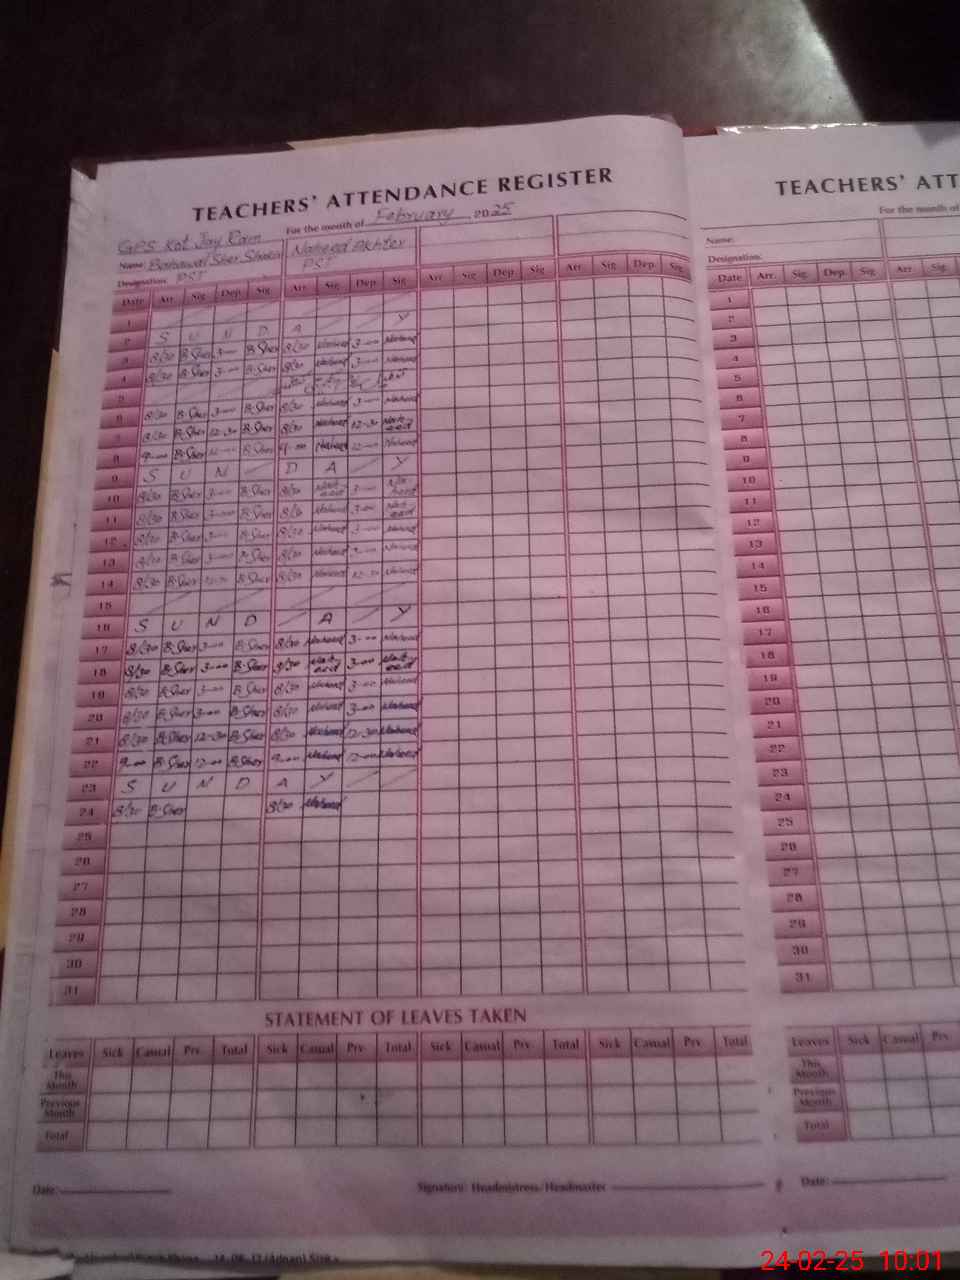 TEACHERS' ATTENDANCE REGISTER
For the month of February 2025
GPS Kot Jay Ram
Name: Bahawal Sher Naheed Akhter
Designation: PST PST
Date Arr. Sig. Dep. Sig. Arr. Sig. Dep. Sig. Arr. Sig. Dep. Sig. Arr. Sig. Dep. Sig.
1
2 S U N D A Y
3 8/30 B.Sher 3-00 B.Sher 8/30 Naheed 3-00 Naheed
4 8/30 B.Sher 3-00 B.Sher 8/30 Naheed 3-00 Naheed
5
6 8/30 B.Sher 3-00 B.Sher 8/30 Naheed 3-00 Naheed
7 8/30 B.Sher 12-30 B.Sher 8/30 Naheed 12-30 Naheed
8 9-00 B.Sher 12-00 B.Sher 9-00 Naheed 12-00 Naheed
9 S U N D A Y
10 8/30 B.Sher 3-00 B.Sher 8/30 Naheed 3-00 Naheed
11 8/30 B.Sher 3-00 B.Sher 8/30 Naheed 3-00 Naheed
12 8/30 B.Sher 3-00 B.Sher 8/30 Naheed 3-00 Naheed
13 8/30 B.Sher 3-00 B.Sher 8/30 Naheed 3-00 Naheed
14 8/30 B.Sher 12-30 B.Sher 8/30 Naheed 12-30 Naheed
15
16 S U N D A Y
17 8/30 B.Sher 3-00 B.Sher 8/30 Naheed 3-00 Naheed
18 8/30 B.Sher 3-00 B.Sher 8/30 Naheed 3-00 Naheed
19 8/30 B.Sher 3-00 B.Sher 8/30 Naheed 3-00 Naheed
20 8/30 B.Sher 3-00 B.Sher 8/30 Naheed 3-00 Naheed
21 8/30 B.Sher 12-30 B.Sher 8/30 Naheed 12-30 Naheed
22 9-00 B.Sher 12-00 B.Sher 9-00 Naheed 12-00 Naheed
23 S U N D A Y
24 8/30 B.Sher 8/30 Naheed
25
26
27
28
29
30
31
STATEMENT OF LEAVES TAKEN
Leaves Sick Casual Prv. Total Sick Casual Prv. Total Sick Casual Prv. Total Sick Casual Prv. Total
This Month
Previous Month
Total
Date: Signature: Headmistress/Headmaster
TEACHERS' ATT
For the month of
Name:
Designation:
Date Arr. Sig. Dep. Sig. Arr. Sig.
1
2
3
4
5
6
7
8
9
10
11
12
13
14
15
16
17
18
19
20
21
22
23
24
25
26
27
28
29
30
31
Leaves Sick Casual Prv.
This Month
Previous Month
Total
Date:
24-02-25 10:01